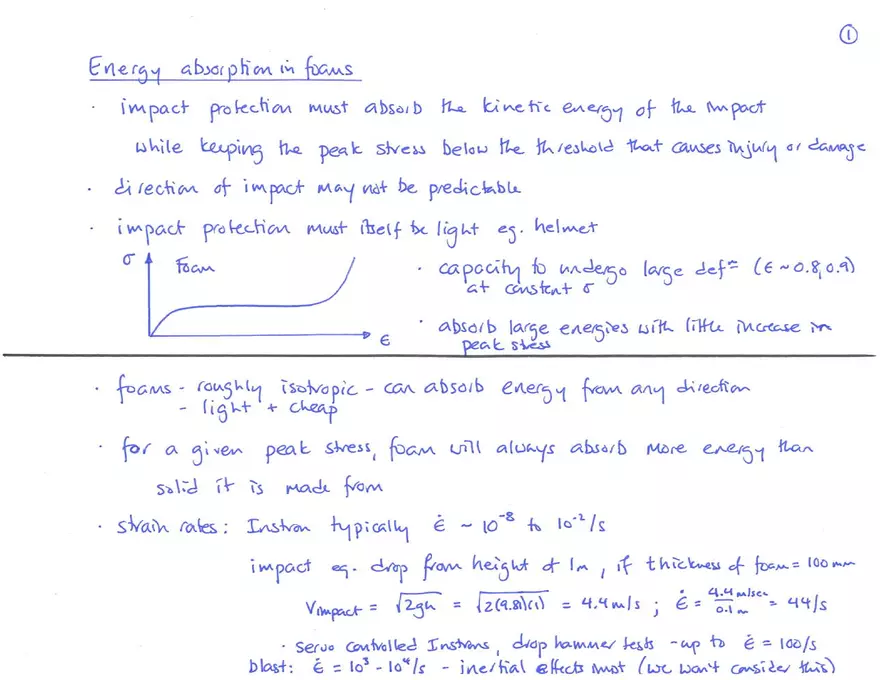 ①
Energy absorption in foams
· impact protection must absorb the kinetic energy of the impact
while keeping the peak stress below the threshold that causes injury or damage
· direction of impact may not be predictable
· impact protection must itself be light eg. helmet
σ Foam
ε
· capacity to undergo large defⁿ (ε ~ 0.8, 0.9)
at constant σ
· absorb large energies with little increase in
peak stress
· foams - roughly isotropic - can absorb energy from any direction
- light + cheap
· for a given peak stress, foam will always absorb more energy than
solid it is made from
· strain rates: Instron typically ε̇ ~ 10⁻⁸ to 10⁻²/s
impact eg. drop from height of 1m, if thickness of foam = 100mm
Vimpact = √2gh = √2(9.81)(1) = 4.4m/s ; ε̇ = 4.4m/sec / 0.1m = 44/s
· servo controlled Instrons, drop hammer tests - up to ε̇ = 100/s
blast: ε̇ = 10³ - 10⁴/s - inertial effects impt (we won't consider this)